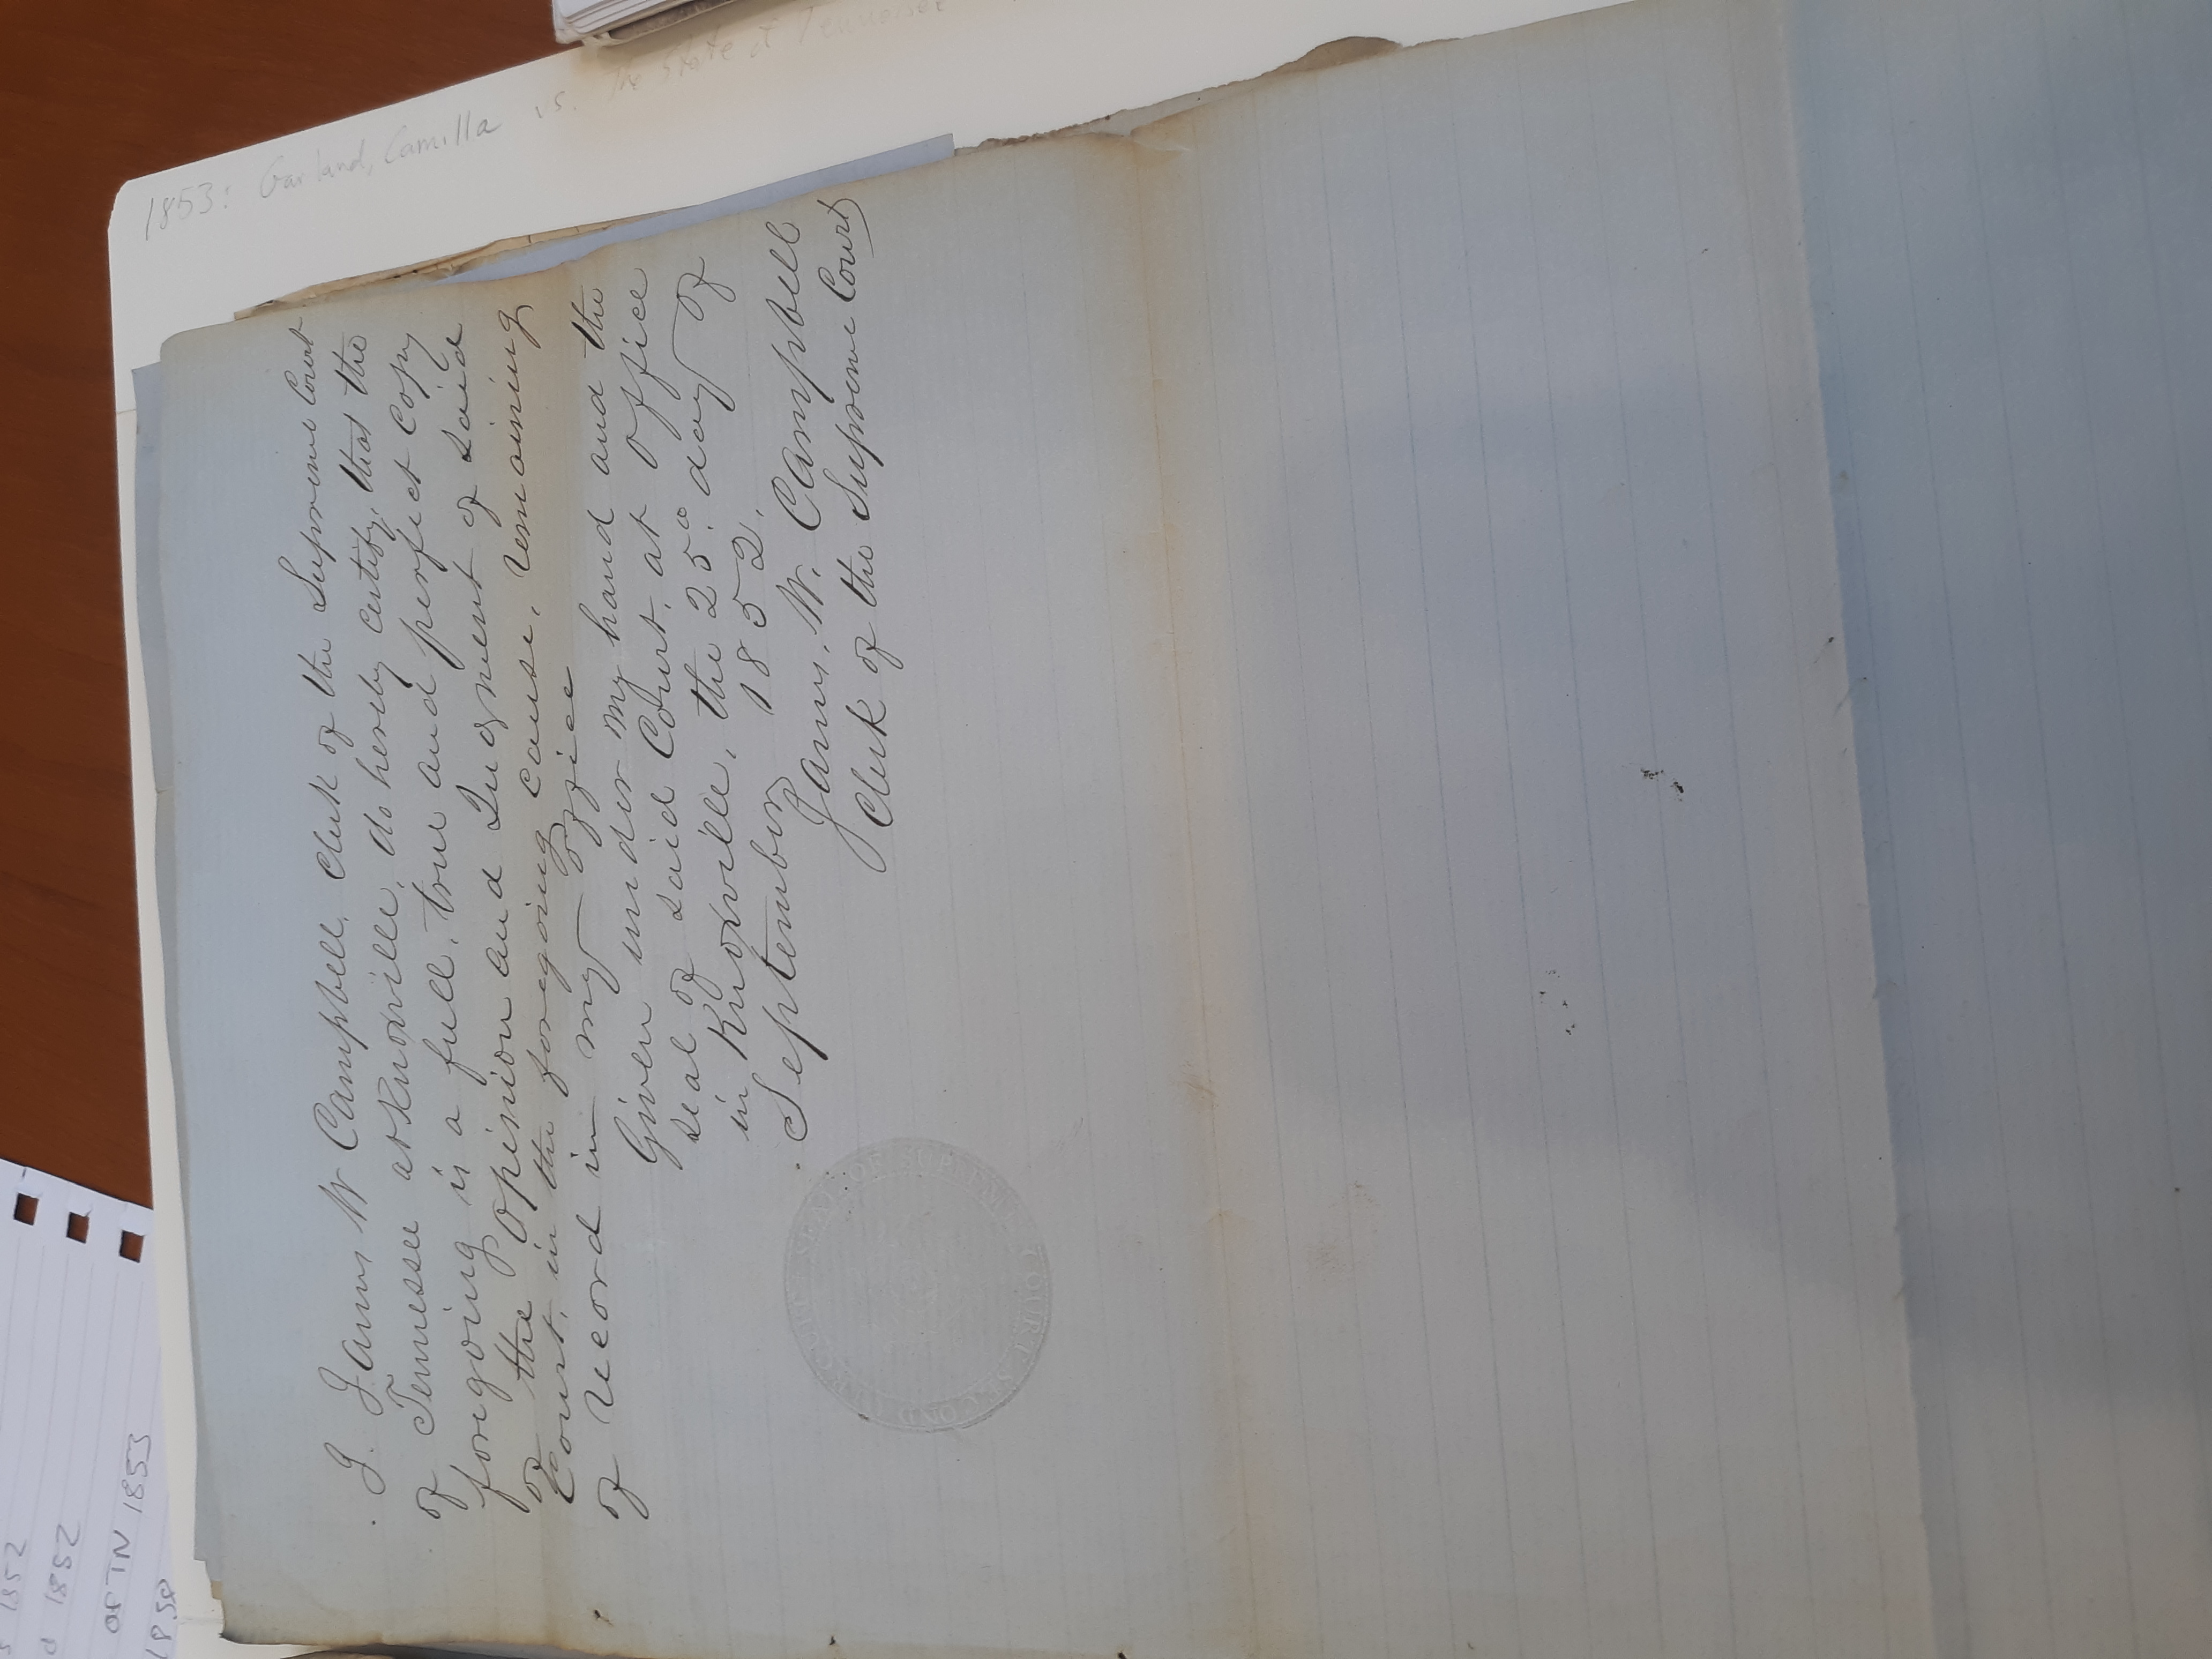 s 1852
d 1852
of TN 1853
1858
1853: Garland, Camilla vs. The State of Tennessee
I. James W Campbell, Clerk of the Supreme Court
of Tennessee at Knoxville, do hereby certify, that the
foregoing is a full, true and perfect copy
of the Opinion and Judgment of said
Court, in the foregoing cause, remaining
of record in my office
Given under my hand and the
seal of said Court, at office
in Knoxville, the 25º. day of
September 1852.
James. W. Campbell
Clerk of the Supreme Court
SEAL OF SUPREME COURT SECOND CIRCUIT